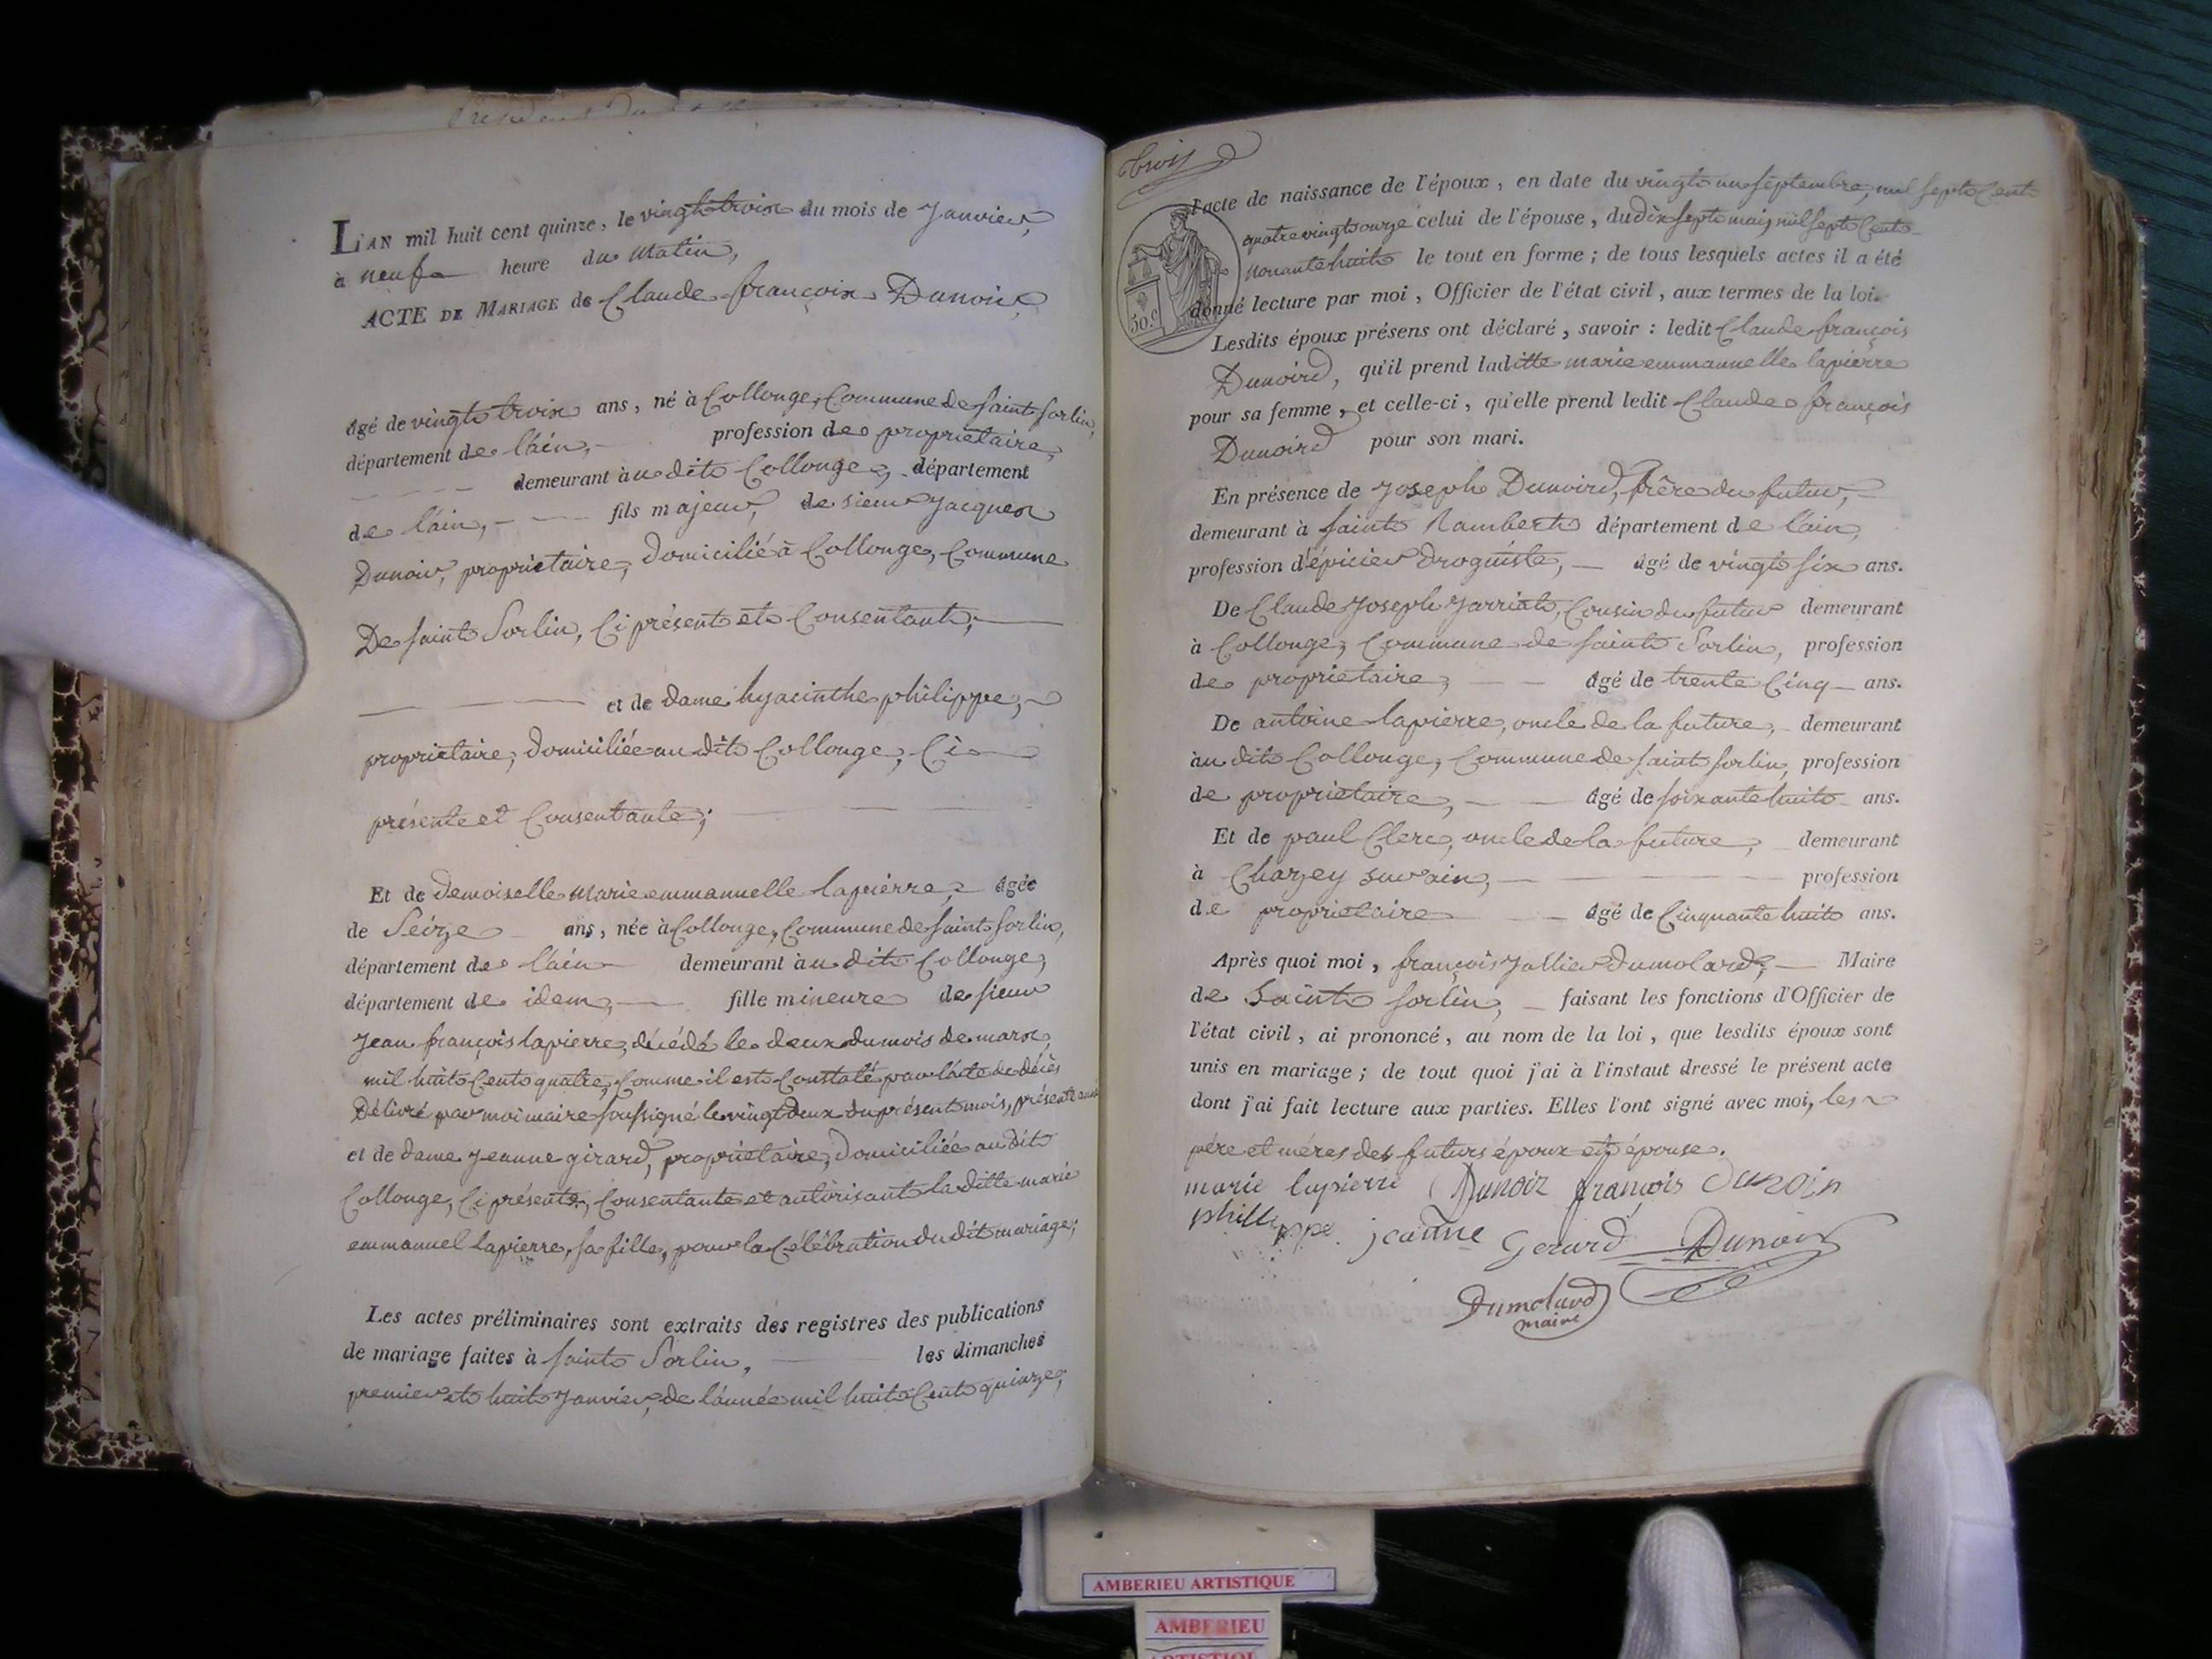 L'AN mil huit cent quinze, le vingt trois du mois de Janvier,
à neuf heure du Matin,
ACTE DE MARIAGE de Claude françois Dunoir,
âgé de vingt trois ans, né à Collonge, Commune de saint Sorlin,
département de l'ain, profession de propriétaire,
demeurant àu dit Collonge, département
de l'ain, fils majeur, de sieur Jacques
Dunoir, propriétaire, domicilié à Collonge, Commune
De saint Sorlin, Ci présent et Consentant,
et de dame hyacinthe philippe,
propriétaire, domiciliée au dit Collonge, Ci
présente et Consentante;
Et de Demoiselle Marie emmannuelle lapierre, âgée
de Seize ans, née à Collonge, Commune de saint Sorlin,
département de l'ain demeurant àu dit Collonge,
département de idem, fille mineure de sieur
Jean françois lapierre, décédé le deux du mois de mars,
mil huit Cent quatre, Comme il est Constaté par l'acte de décès
Délivré par moi maire soussigné le vingt deux du présent mois, présente année
et de dame Jeanne girard, propriétaire, domiciliée au dit
Collonge, Ci présente, Consentante et autorisant la ditte marie
emmanuel lapierre, sa fille, pour la Célébration du dit mariage;
Les actes préliminaires sont extraits des registres des publications
de mariage faites à saint Sorlin, les dimanches
premier et huit Janvier, de l'année mil huit Cent quinze,
trois
l'acte de naissance de l'époux, en date du vingt un septembre, mil sept Cent
quatre vingt onze celui de l'épouse, du dix sept mai mil sept Cent
nonante huit le tout en forme; de tous lesquels actes il a été
donné lecture par moi, Officier de l'état civil, aux termes de la loi.
50.c
Lesdits époux présens ont déclaré, savoir: ledit Claude françois
Dunoird, qu'il prend laditte marie emmannuelle lapierre
pour sa femme, et celle-ci, qu'elle prend ledit Claude françois
Dunoird pour son mari.
En présence de Joseph Dunoird, frère du futur,
demeurant à saint Rambert département de l'ain,
profession d'épicier Droguiste, âgé de vingt six ans.
De Claude Joseph Jarriat, Cousin du futur demeurant
à Collonge, Commune de saint Sorlin, profession
de propriétaire, âgé de trente Cinq ans.
De antoine lapierre, oncle de la future, demeurant
àu dit Collonge, Commune de saint Sorlin, profession
de propriétaire, âgé de soixante huit ans.
Et de paul Clerc, oncle de la future, demeurant
à Chazey sur ain, profession
de propriétaire âgé de Cinquante huit ans.
Après quoi moi, françois Jullien Dumolard, Maire
de Saint Sorlin, faisant les fonctions d'Officier de
l'état civil, ai prononcé, au nom de la loi, que lesdits époux sont
unis en mariage; de tout quoi j'ai à l'instaut dressé le présent acte
dont j'ai fait lecture aux parties. Elles l'ont signé avec moi, les
père et mères des futurs époux et épouse.
marie lapierre Dunoir françois Dunoir
phillippe jeanne Gerard Dunoir
Dumolard
maire
AMBERIEU ARTISTIQUE
AMBERIEU
ARTISTIQUE